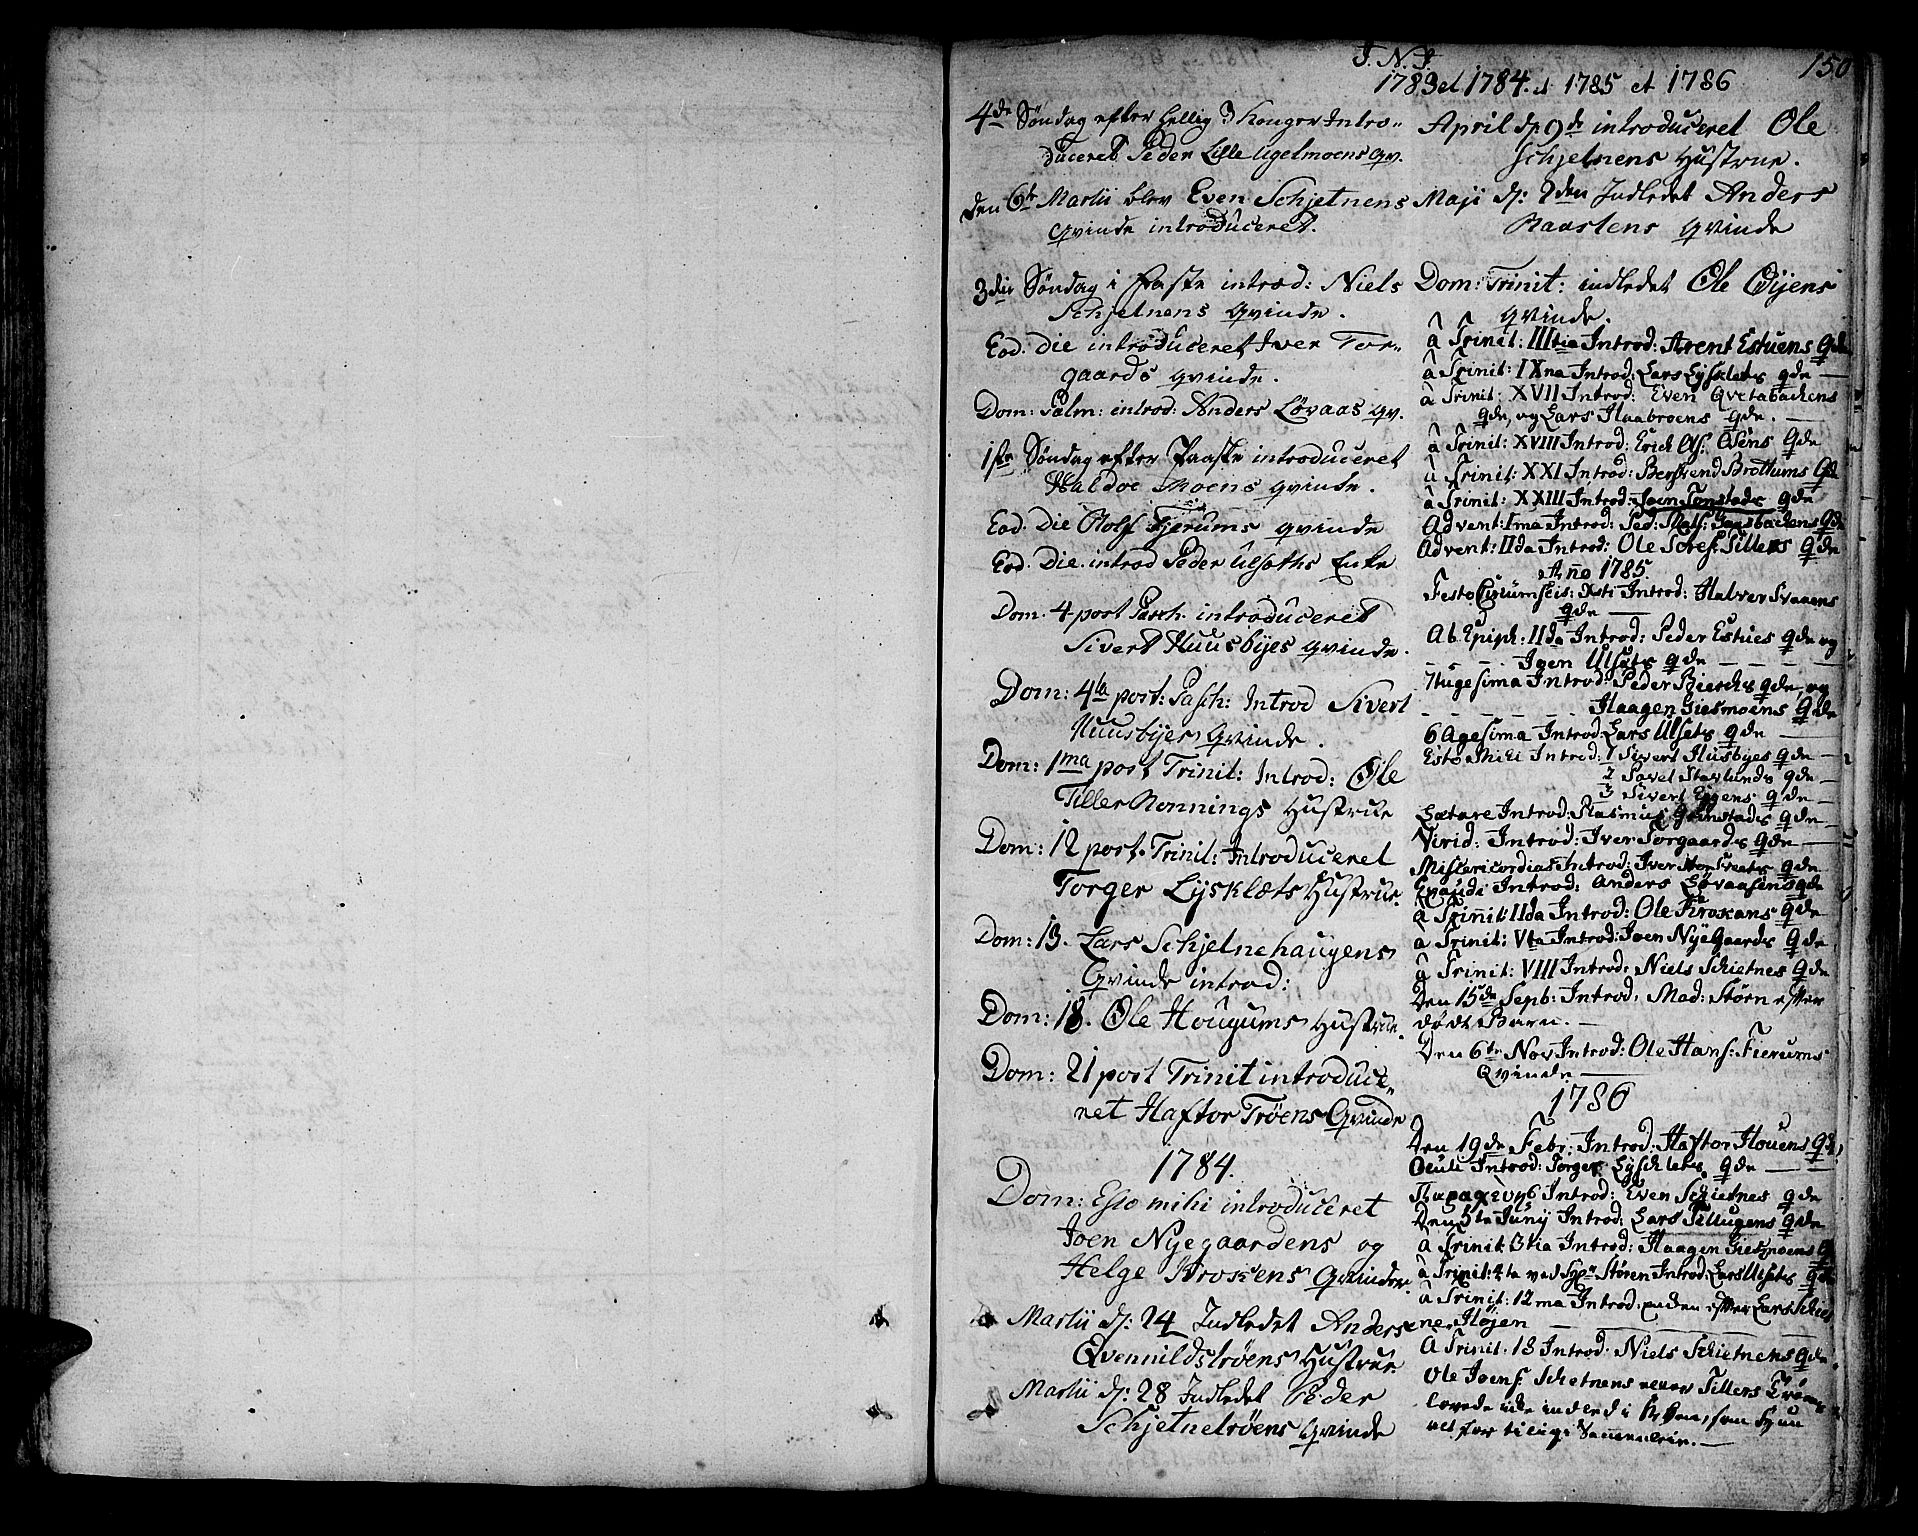 J. N. J.
150
1783 et 1784. et 1785 et 1786
4de Søndag efter Hellig 3 Konger Intro-
duceret Peder Lille Ugelmoens qv.
den 6te Martii blev Even Schjetnens
qvinde introduceret.
3die Søndag i Faste introd: Niels
Schjelnens qvinde.
Eod. Die introduceret Iver Tor-
gaards qvinde.
Dom: Palm: introd: Anders Løvaas qv.
1ste Søndag efter Paaske introduceret
Haldoe Moens qvinde.
Eod. Die Rolf Fjerums qvinde
Eod. Die. introd Peder Ulsæths Enke
Dom. 4 post Pasch. introduceret
Sivert Huusbyes qvinde.
Dom: 4ta post: Pasch: Introd Sivert
Huusbyes Qvinde.
Dom: 1ma post Trinit: Introd: Ole
Tiller Rønnings Hustrue
Dom: 12 post. Trinit: Introduceret
Torger Lysklæts Hustrue.
Dom: 13. Lars Schjelnehaugens
Qvinde introd:
Dom: 18. Ole Hougums Hustrue.
Dom: 21 post Trinit introduce-
ret Haftor Trøens Qvinde
1784.
Dom: Esto mihi introduceret
Joen Nyegaardens og
Helge Kroxens Qvinder.
Martii d: 24 Indledet Anders
Qvennildstrøens Hustrue.
Martii d: 28 Indledet Peder
Schjetnetrøens Qvinde
April d: 9de introduceret Ole
Schjelnens Hustrue.
Maji d: 2den Indledet Anders
Raastens qvinde
Dom: Trinit: indledet Ole Øijens
qvinde.
a Trinit: IIItia Introd: Arent Estuens Qde
a Trinit: IXna Introd: Lars Lysklets qde
a Trinit: XVII Introd: Even Qvetabackens
qde, og Lars Haabroens qde.
a Trinit: XVIII Introd: Erich Ols: Øsens Qde
a Trinit: XXI Introd: Bersvend Brøttums Qde
a Trinit: XXIII Introd: Joen Tonstads qde
Advent: Ima Introd: Ped: Jansbackens Qde
Advent: IIda Introd: Ole Sillers Qde
Año 1785.
Festo Circumscis: Xsti Introd: Halver Svaaens
qde
Ab. Epiph: IIda Introd: Peder Esties qde og
Joen Ulsets qde
7tugesima Introd: Peder Bierchs qde og
Haagen Giesmoens Qde
6 Agesima Introd: Lars Ulsets Qde
Esto Mihi Introd: 1 Sivert Husbyes Qde
2 Povel Stavlunds qde
3 Sivert Eggens qde
Lætare Introd: Rasmus Grønstads qde
Virid: Introd: Iver Torgaards Qde
Misericordias Introd: Iver Qde
Exaudi Introd: Anders Løvaasens Qde
a Trinit: IIda Introd: Ole Kroxans Qde
a Trinit: Vta Introd: Joen Nyegaards Qde
a Trinit: VIII Introd: Niels Schietnes Qde
Den 15de Septb: Introd: Mad: Størn efter
dødt Barn.
Den 6te Nov Introd: Ole Hans: Fierums
Qvinde
1786
Den 19de Febr: Introd: Haftor Houens Qde
Oculi Introd: Torger Lyschlets qde
Παρασκευης Introd: Even Schietnes qde
Den 5te Junij Introd: Lars Tillugens Qde
a Trinit: 3tia Introd: Haagen Giesmoens Q
a Trinit: 4ta ved Hr Støren Introd: Lars Ulsets qde
a Trinit: 12ma Introd: enchen efter Lars Schiet
ne Høgen
a Trinit. 13 Introd: Niels Schietnens Qde
Ole Joens: Schetnens Tillers Trøen
lovede ike indled i Kirken, som Hun
var for tilig Sammenleie.